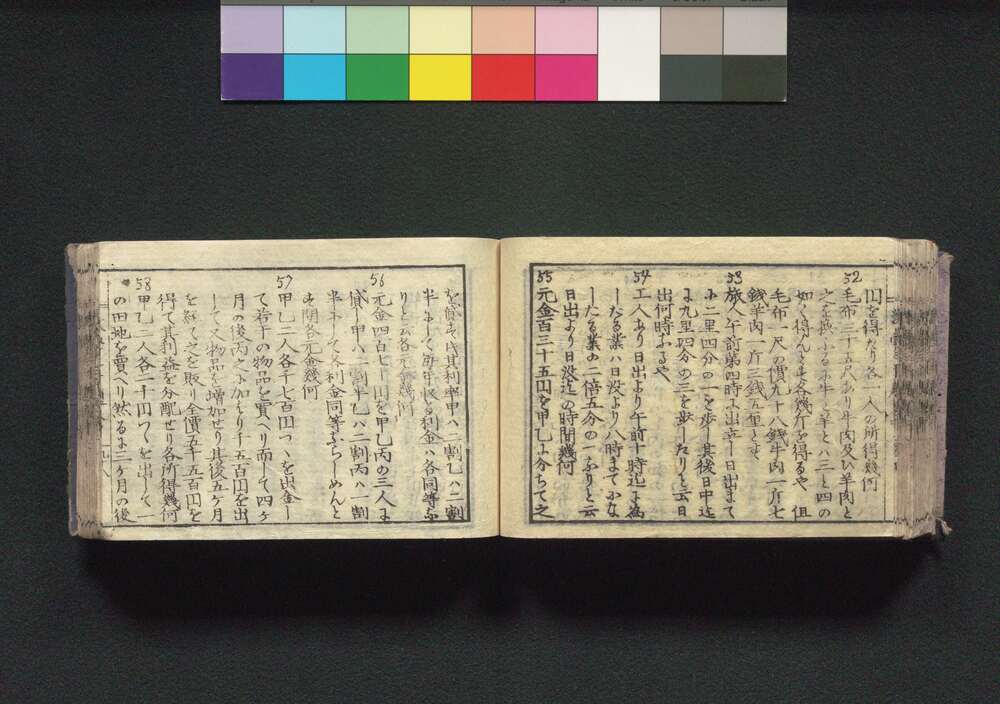 圓を得たり各一人の所得幾何
52
毛布三十五尺あり牛肉及ひ羊肉と
之を換ふるに牛と羊とハ三と四の
如く得んとす各幾斤を得るや但
毛布一尺の價九十八銭牛肉一斤七
銭羊肉一斤三銭五厘とす
53
旅人午前第四時より出立し日出まて
に二里四分の一を歩し其後日中迄
に九里四分の三を歩したりと云日
出何時なるや
54
工人あり日出より午前十時迄に為
したる業ハ日没より八時まてにな
したる業の二倍五分の一なりと云
日出より日没迄の時間幾何
55
元金百三十五圓を甲乙に分ちて之
を貸す其利率甲ハ二割乙ハ二割
半にして毎年收る利金ハ各同等な
りと云各元金幾何
56
元金四百七十圓を甲乙丙の三人に
貸し甲ハ二割半乙ハ二割丙ハ一割
半にして各利金同等ならしめんと
す問各元金幾何
57
甲乙二人各千七百圓つゝを出金し
て若干の物品を買へり而して四ヶ
月の後丙之に加はり千五百圓を出
して又物品を増加せり其後五ヶ月
を経て之を販り全價五千五百圓を
得て其利益を分配せり各所得幾何
58
甲乙二人各二千圓つゝを出して
の田地を買へり然るに三ヶ月の後